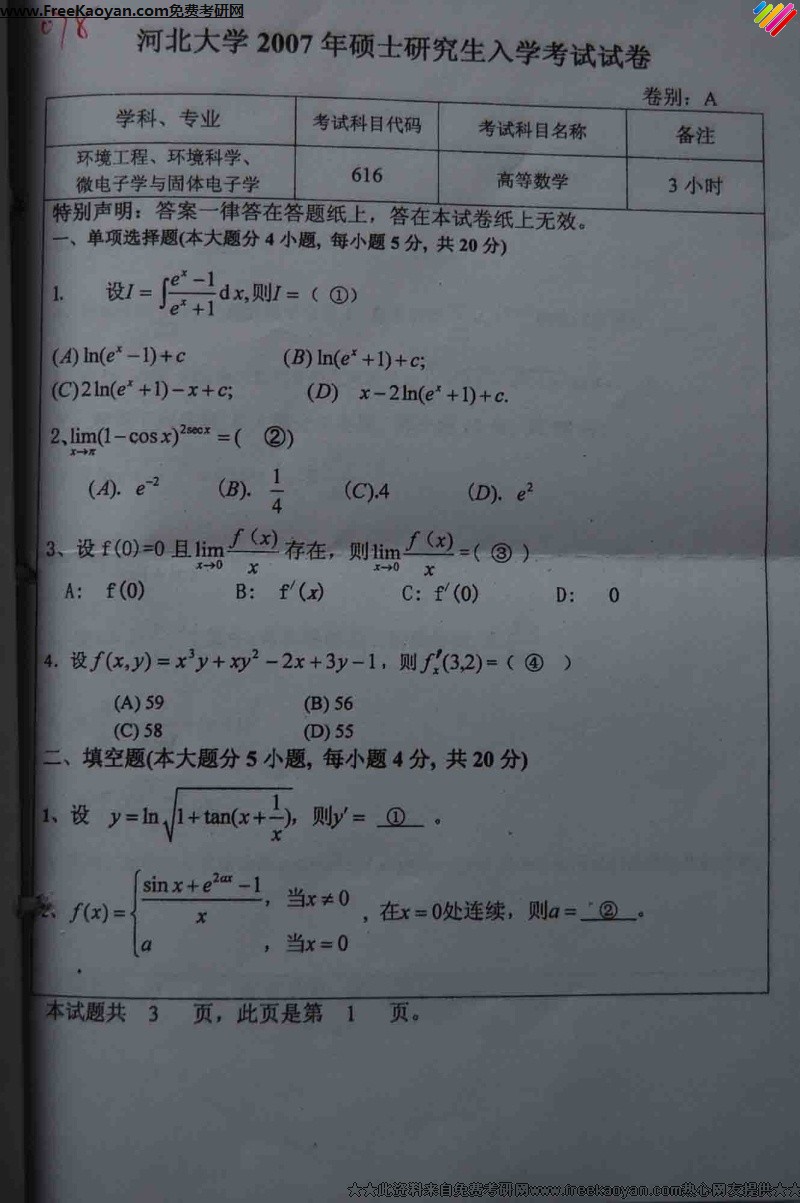 www.FreeKaoyan.com免费考研网
078
河北大学 2007 年硕士研究生入学考试试卷
卷别：A
学科、专业 考试科目代码 考试科目名称 备注
环境工程、环境科学、
微电子学与固体电子学 616 高等数学 3 小时
特别声明：答案一律答在答题纸上，答在本试卷纸上无效。
一、单项选择题(本大题分 4 小题, 每小题 5 分, 共 20 分)
1. 设I = ∫(e^x −1)/(e^x +1) dx,则I =（ ①）
(A) ln(e^x −1)+c (B) ln(e^x +1)+c;
(C)2ln(e^x +1)−x+c; (D) x−2ln(e^x +1)+c.
2、lim_{x→π}(1−cos x)^{2sec x} =( ②)
(A). e^{-2} (B). 1/4 (C).4 (D). e^2
3、设 f(0)=0 且 lim_{x→0} f（x）/x 存在，则 lim_{x→0} f（x）/x =( ③ )
A: f(0) B: f′(x) C: f′(0) D: 0
4. 设 f(x,y) = x^3y + xy^2 −2x+3y−1，则 f_x′(3,2) =（ ④ ）
(A) 59 (B) 56
(C) 58 (D) 55
二、填空题(本大题分 5 小题, 每小题 4 分, 共 20 分)
1、设 y = ln√(1+tan(x+1/x))，则y′ = ① 。
2、f(x) = { (sin x+e^{2ax} −1)/x ，当x ≠ 0
a ，当x = 0 ，在x = 0处连续，则a = ② 。
本试题共 3 页，此页是第 1 页。
☆☆此资料来自免费考研网www.freekaoyan.com热心网友提供☆☆